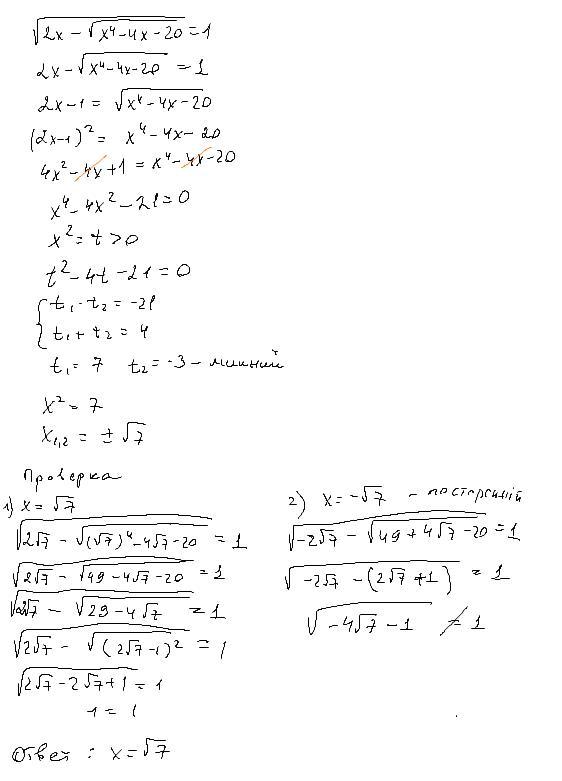 √(2x - √(x⁴-4x-20)) = 1
2x - √(x⁴-4x-20) = 1
2x-1 = √(x⁴-4x-20)
(2x-1)² = x⁴-4x-20
4x²-4x+1 = x⁴-4x-20
x⁴-4x²-21=0
x² = t > 0
t²-4t-21=0
{ t₁·t₂ = -21
t₁+t₂ = 4
t₁ = 7 t₂ = -3 -
x² = 7
x₁,₂ = ±√7
Проверка
1) x = √7
√(2√7 - √((√7)⁴-4√7-20)) = 1
√(2√7 - √(49-4√7-20)) = 1
√(2√7 - √(29-4√7)) = 1
√(2√7 - √((2√7-1)²)) = 1
√(2√7-2√7+1) = 1
1 = 1
2) x = -√7 -
√(-2√7 - √(49+4√7-20)) = 1
√(-2√7 - (2√7+1)) = 1
√(-4√7-1) ≠ 1
Ответ : x = √7